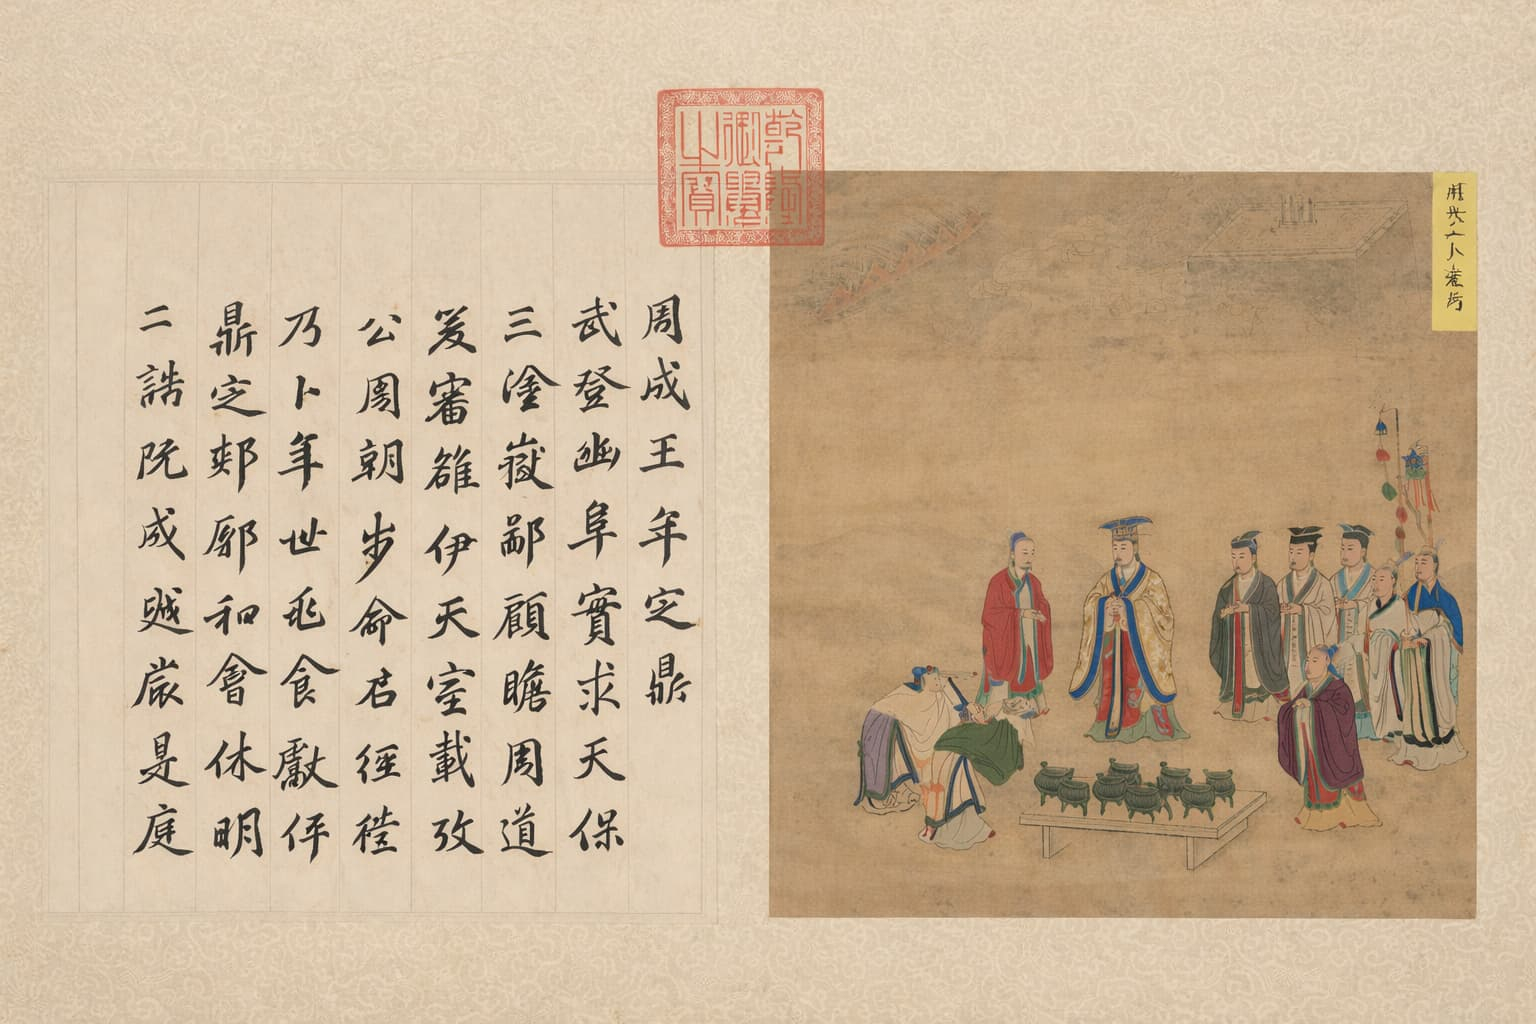 周成王年定鼎
武登幽阜實求天保
三塗嶽鄙顧瞻周道
爰審雒伊天室載攷
公周朝步命召徑
乃卜年世兆食獻伻
鼎定郟郭和會休明
二誥既成是庭
乾隆御覽之寶